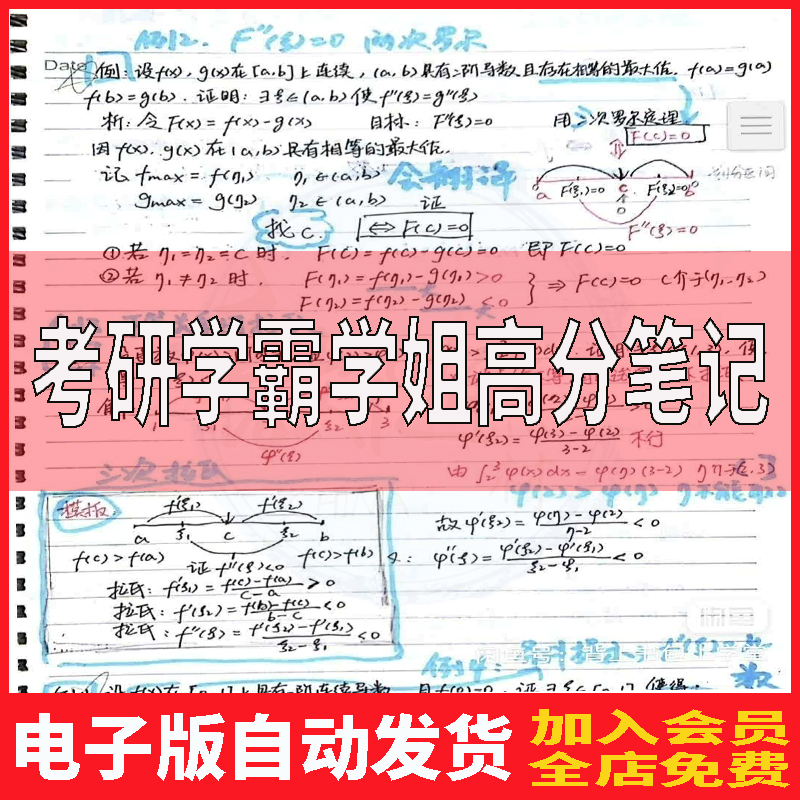 例12. F''(ξ)=0 两次罗尔
Date
例:设f(x), g(x)在[a,b]上连续,(a,b)具有二阶导数且存在相等的最大值, f(a)=g(a)
f(b)=g(b). 证明:∃ξ∈(a,b)使f''(ξ)=g''(ξ)
析:令F(x)=f(x)-g(x) 目标:F''(ξ)=0 用二次罗尔定理
F(c)=0
因f(x),g(x)在(a,b)具有相等的最大值.
记 fmax=f(η₁) η₁∈(a,b) 会翻译
a F'(ξ₁)=0 c F'(ξ₂)=0 b
gmax=g(η₂) η₂∈(a,b) 证
F''(ξ)=0
找c. ⇔F(c)=0
①若η₁=η₂=c时, F(c)=f(c)-g(c)=0 即F(c)=0
②若η₁≠η₂时, F(η₁)=f(η₁)-g(η₁)>0
F(η₂)=f(η₂)-g(η₂)<0 ⇒ F(c)=0 c介于(η₁,η₂)
考研学霸学姐高分笔记
φ'(ξ₂)=φ(3)-φ(2)/3-2 不行
φ''(ξ)
由∫₂³φ(x)dx=φ(η)(3-2) η∈(2,3)
三次拉氏
φ(2)>φ(η)
模板: f'(ξ₁) f'(ξ₂)
a ξ₁ c ξ₂ b
故φ'(ξ₂)=φ(η)-φ(2)/η-2<0
f(c)>f(a) 证f''(ξ)<0 f(c)>f(b)
φ''(ξ)=φ'(ξ₂)-φ'(ξ₁)/ξ₂-ξ₁<0
拉氏:f'(ξ₁)=f(c)-f(a)/c-a>0
拉氏:f'(ξ₂)=f(b)-f(c)/b-c<0
拉氏:f''(ξ)=f'(ξ₂)-f'(ξ₁)/ξ₂-ξ₁<0
闲鱼
电子版自动发货
加入会员
全店免费